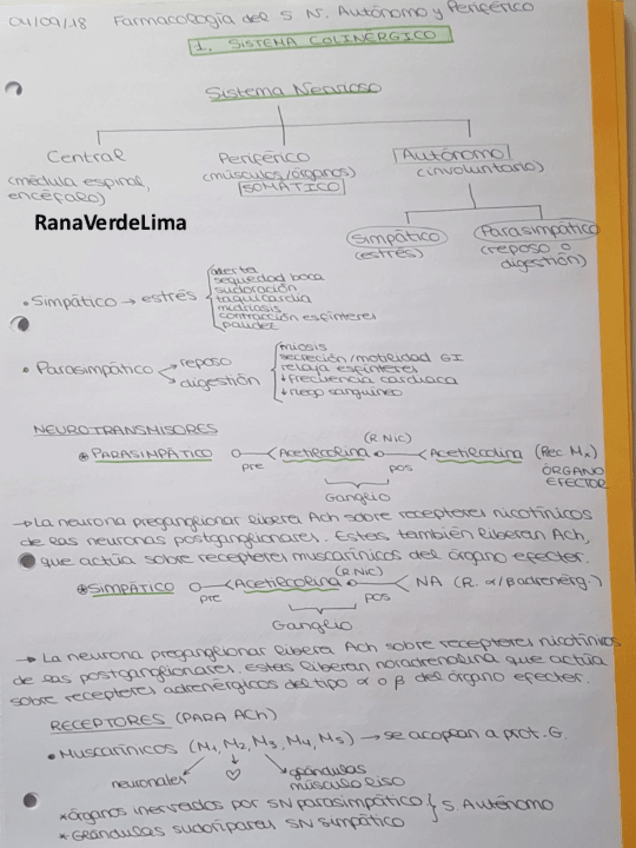 04/09/18 Farmacología del S. N. Autónomo y Periférico
1. SISTEMA COLINÉRGICO
Sistema Nervioso
Central Periférico Autónomo
(médula espinal, (músculos/órganos) (involuntario)
encéfalo) SOMÁTICO
RanaVerdeLima
Simpático Parasimpático
(estrés) (reposo o
digestión)
• Simpático → estrés
alerta
sequedad boca
sudoración
taquicardia
midriasis
contracción esfínteres
palidez
• Parasimpático → reposo
→ digestión
miosis
secreción/motilidad GI
relaja esfínteres
↓ frecuencia cardiaca
↓ riego sanguíneo
NEUROTRANSMISORES
(R Nic)
* PARASIMPÁTICO Acetilcolina Acetilcolina (Rec Mn)
pre pos ÓRGANO
EFECTOR
Ganglio
→ La neurona preganglionar libera Ach sobre receptores nicotínicos
de las neuronas postganglionares. Estas también liberan Ach,
que actúa sobre receptores muscarínicos del órgano efector.
(R Nic)
* SIMPÁTICO Acetilcolina NA (R. α/β adrenérg.)
pre pos
Ganglio
→ La neurona preganglionar libera Ach sobre receptores nicotínicos
de las postganglionares. Estas liberan noradrenalina que actúa
sobre receptores adrenérgicos del tipo α o β del órgano efector.
RECEPTORES (PARA ACh)
• Muscarínicos (M1, M2, M3, M4, M5) → se acoplan a prot. G.
neuronales ♡ glándulas
músculo liso
* Órganos inervados por SN parasimpático } S. Autónomo
* Glándulas sudoríparas SN simpático